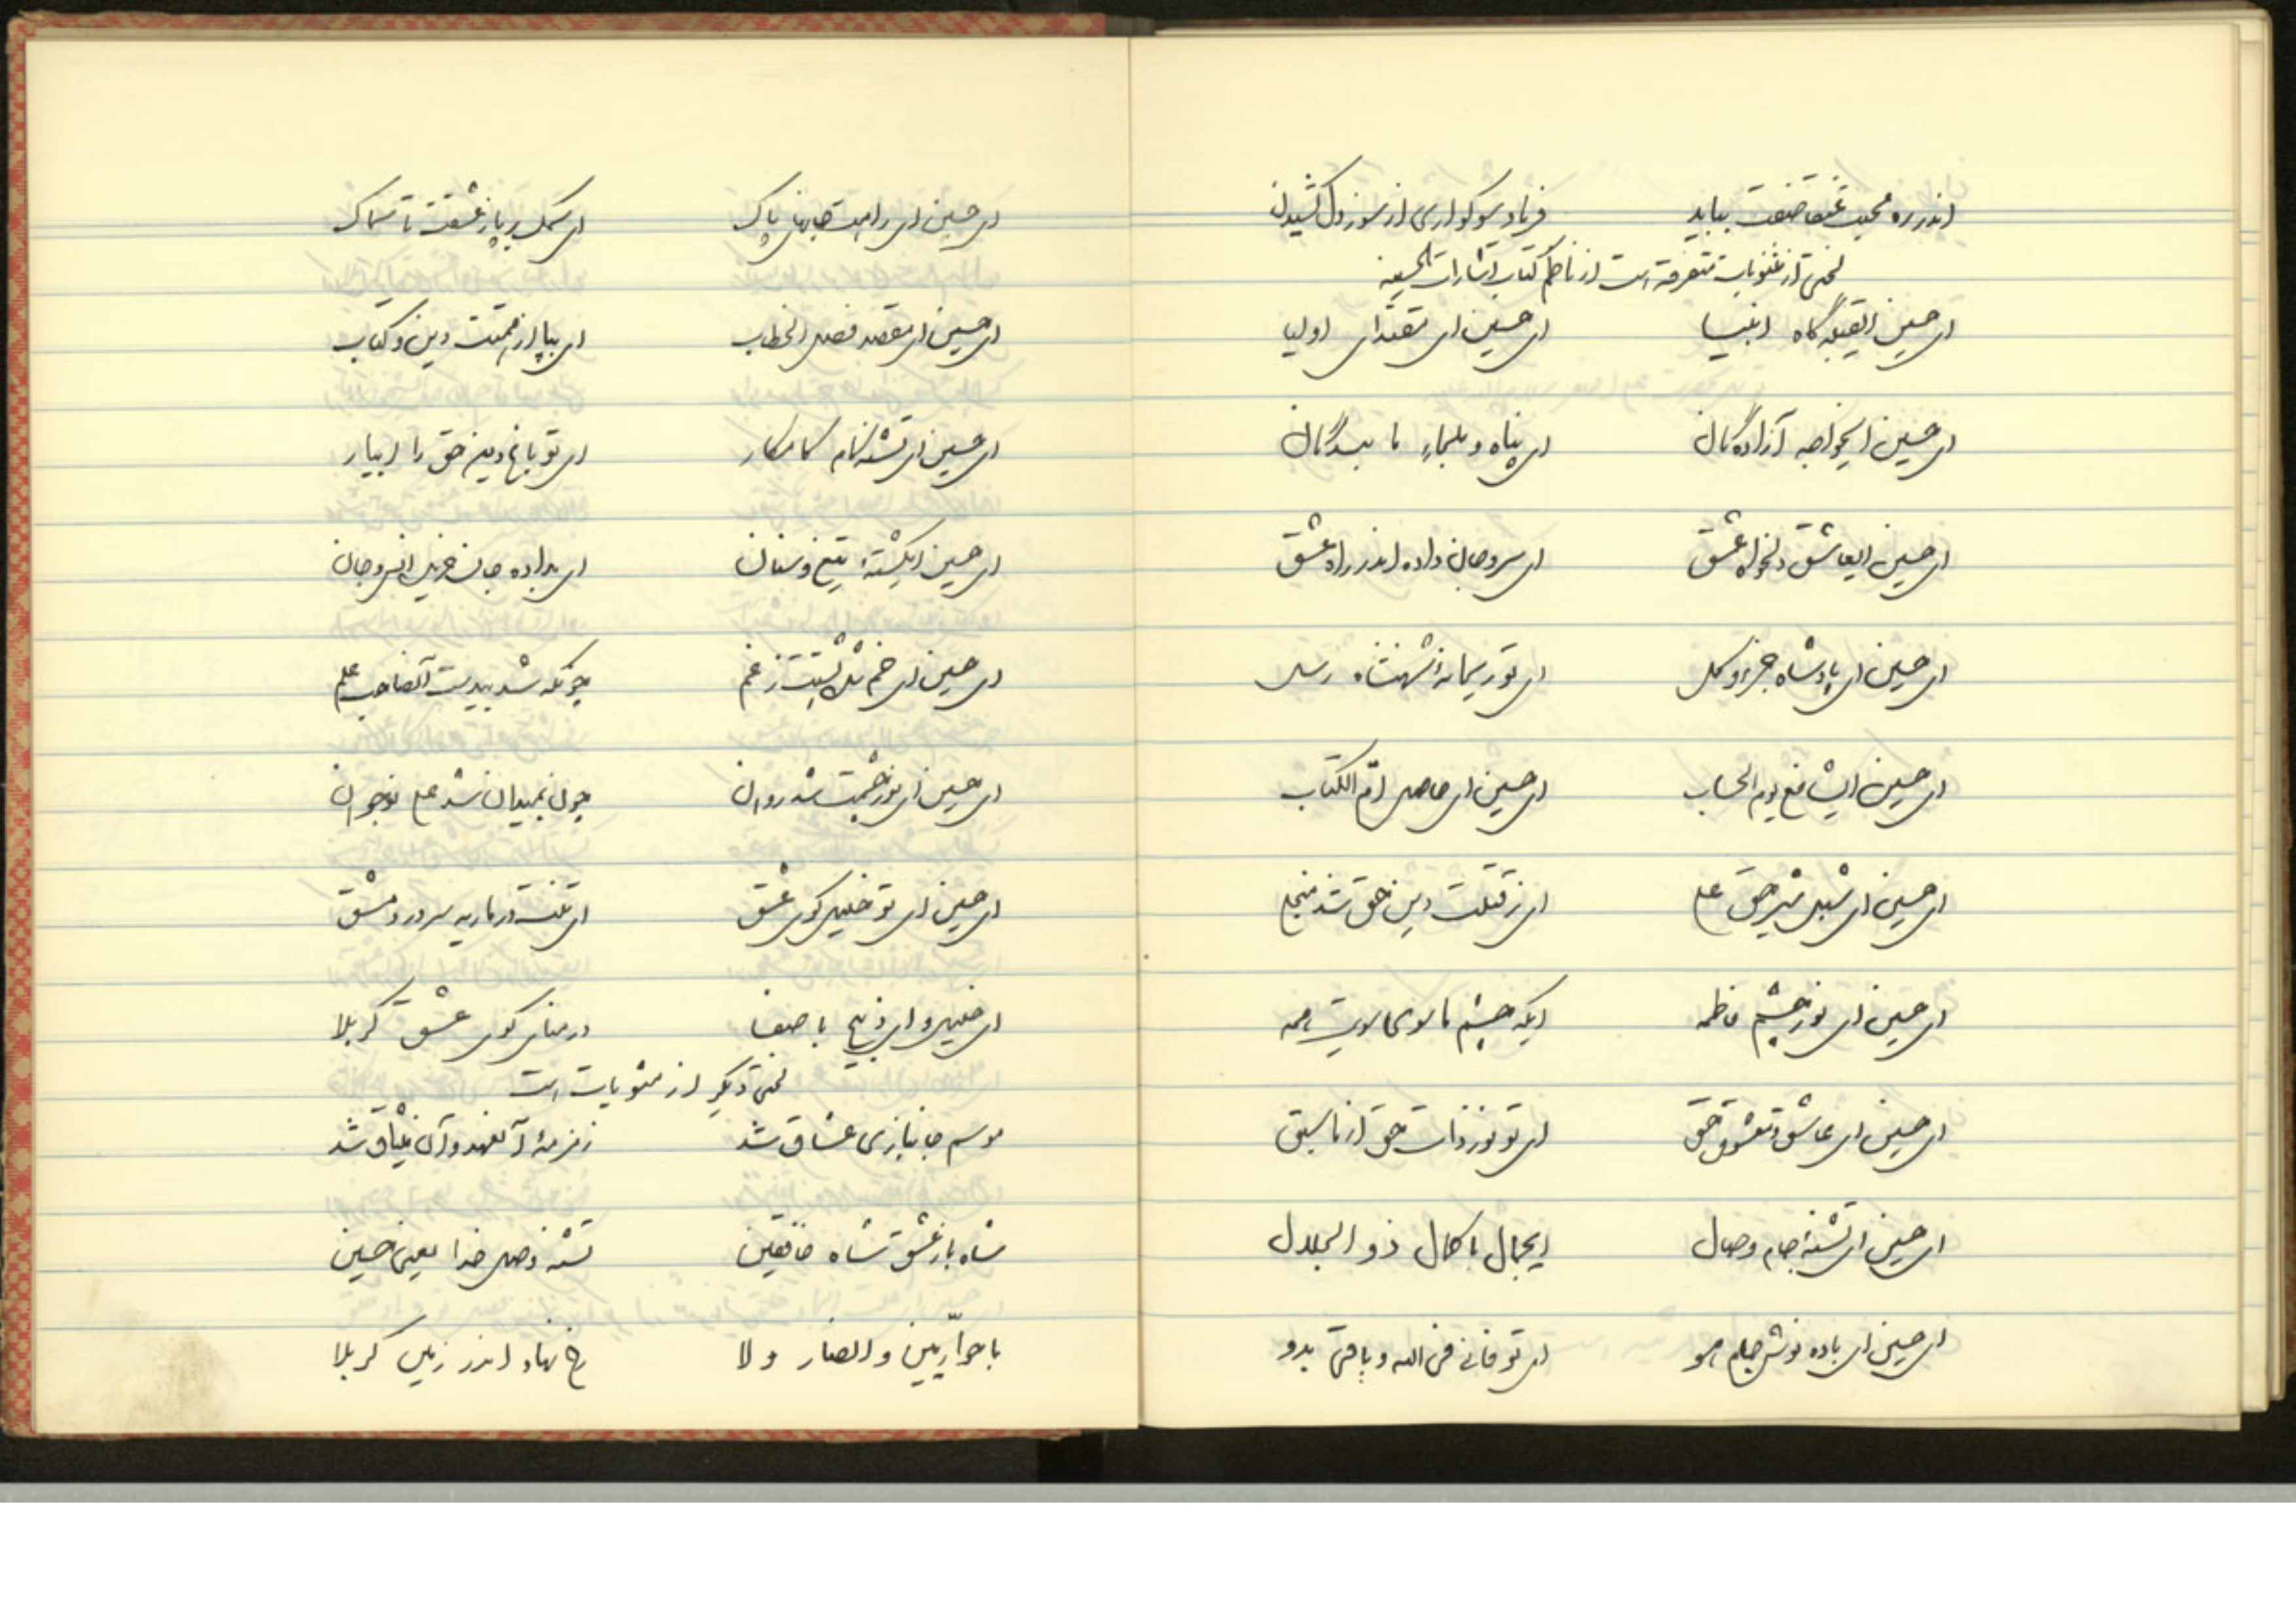 اندر ره محبت عنقا صفت بیاید فریاد سوگواری از سوز دل کشیدن
لختی از مثنویات متفرقه است از ناظم کتاب اشارات الحسینیه
ای حسین ایقبله گاه انبیا ای حسین ای مقتدای اولیا
ای حسین ایخواجه آزادگان ای پناه و ملجاء ما بندگان
ای حسین ایعاشق دلخواه عشق ای سر و جان داده اندر راه عشق
ای حسین ای پادشاه جزء و کل ای تو ریحانه شهنشاه رسل
ای حسین ایشافع یوم الحساب ای حسین ای حاصل ام الکتاب
ای حسین ای شبل شیر حق علی ای ز قتلت دین حق شد منجلی
ای حسین ای نور چشم فاطمه ایکه چشم ما سوی سویت همه
ای حسین ای عاشق و معشوق حق ای تو نور ذات حق از ماسبق
ای حسین ای تشنه جام وصال ایجمال با کمال ذو الجلال
ای حسین ای باده نوش جام هو ای تو فانی فی الله و باقی بدو
ای حسین ای راهت جانهای پاک ای سمک بر پا ز عشقت تا سماک
ای حسین ای مقصد فصل الخطاب ای بپا از همتت دین و کتاب
ای حسین ای تشنه کام کامکار ای تو باغ دین حق را آبیار
ای حسین ایکشتهٔ تیغ و سنان ای بداده جان انس و جان
ای حسین ای خم شد پشتت ز غم چونکه شد بیدست آنصاحب علم
ای حسین ای نور چشمت شد روان چون بمیدان شد علی نوجوان
ای حسین ای تو خلیل کوی عشق ای تنت در ماریه سر در دمشق
ای خلیل و ای ذبیح با صفا در منای کوی عشق کربلا
لختی دیگر از مثنویات است
موسم جانبازی عشاق شد زمزمهٔ آنعهد و آن میثاق شد
شاه باز عشق شاه خافقین تشنه وصل خدا یعنی حسین
با حواریین و انصار ولا رخ نهاد اندر زمین کربلا